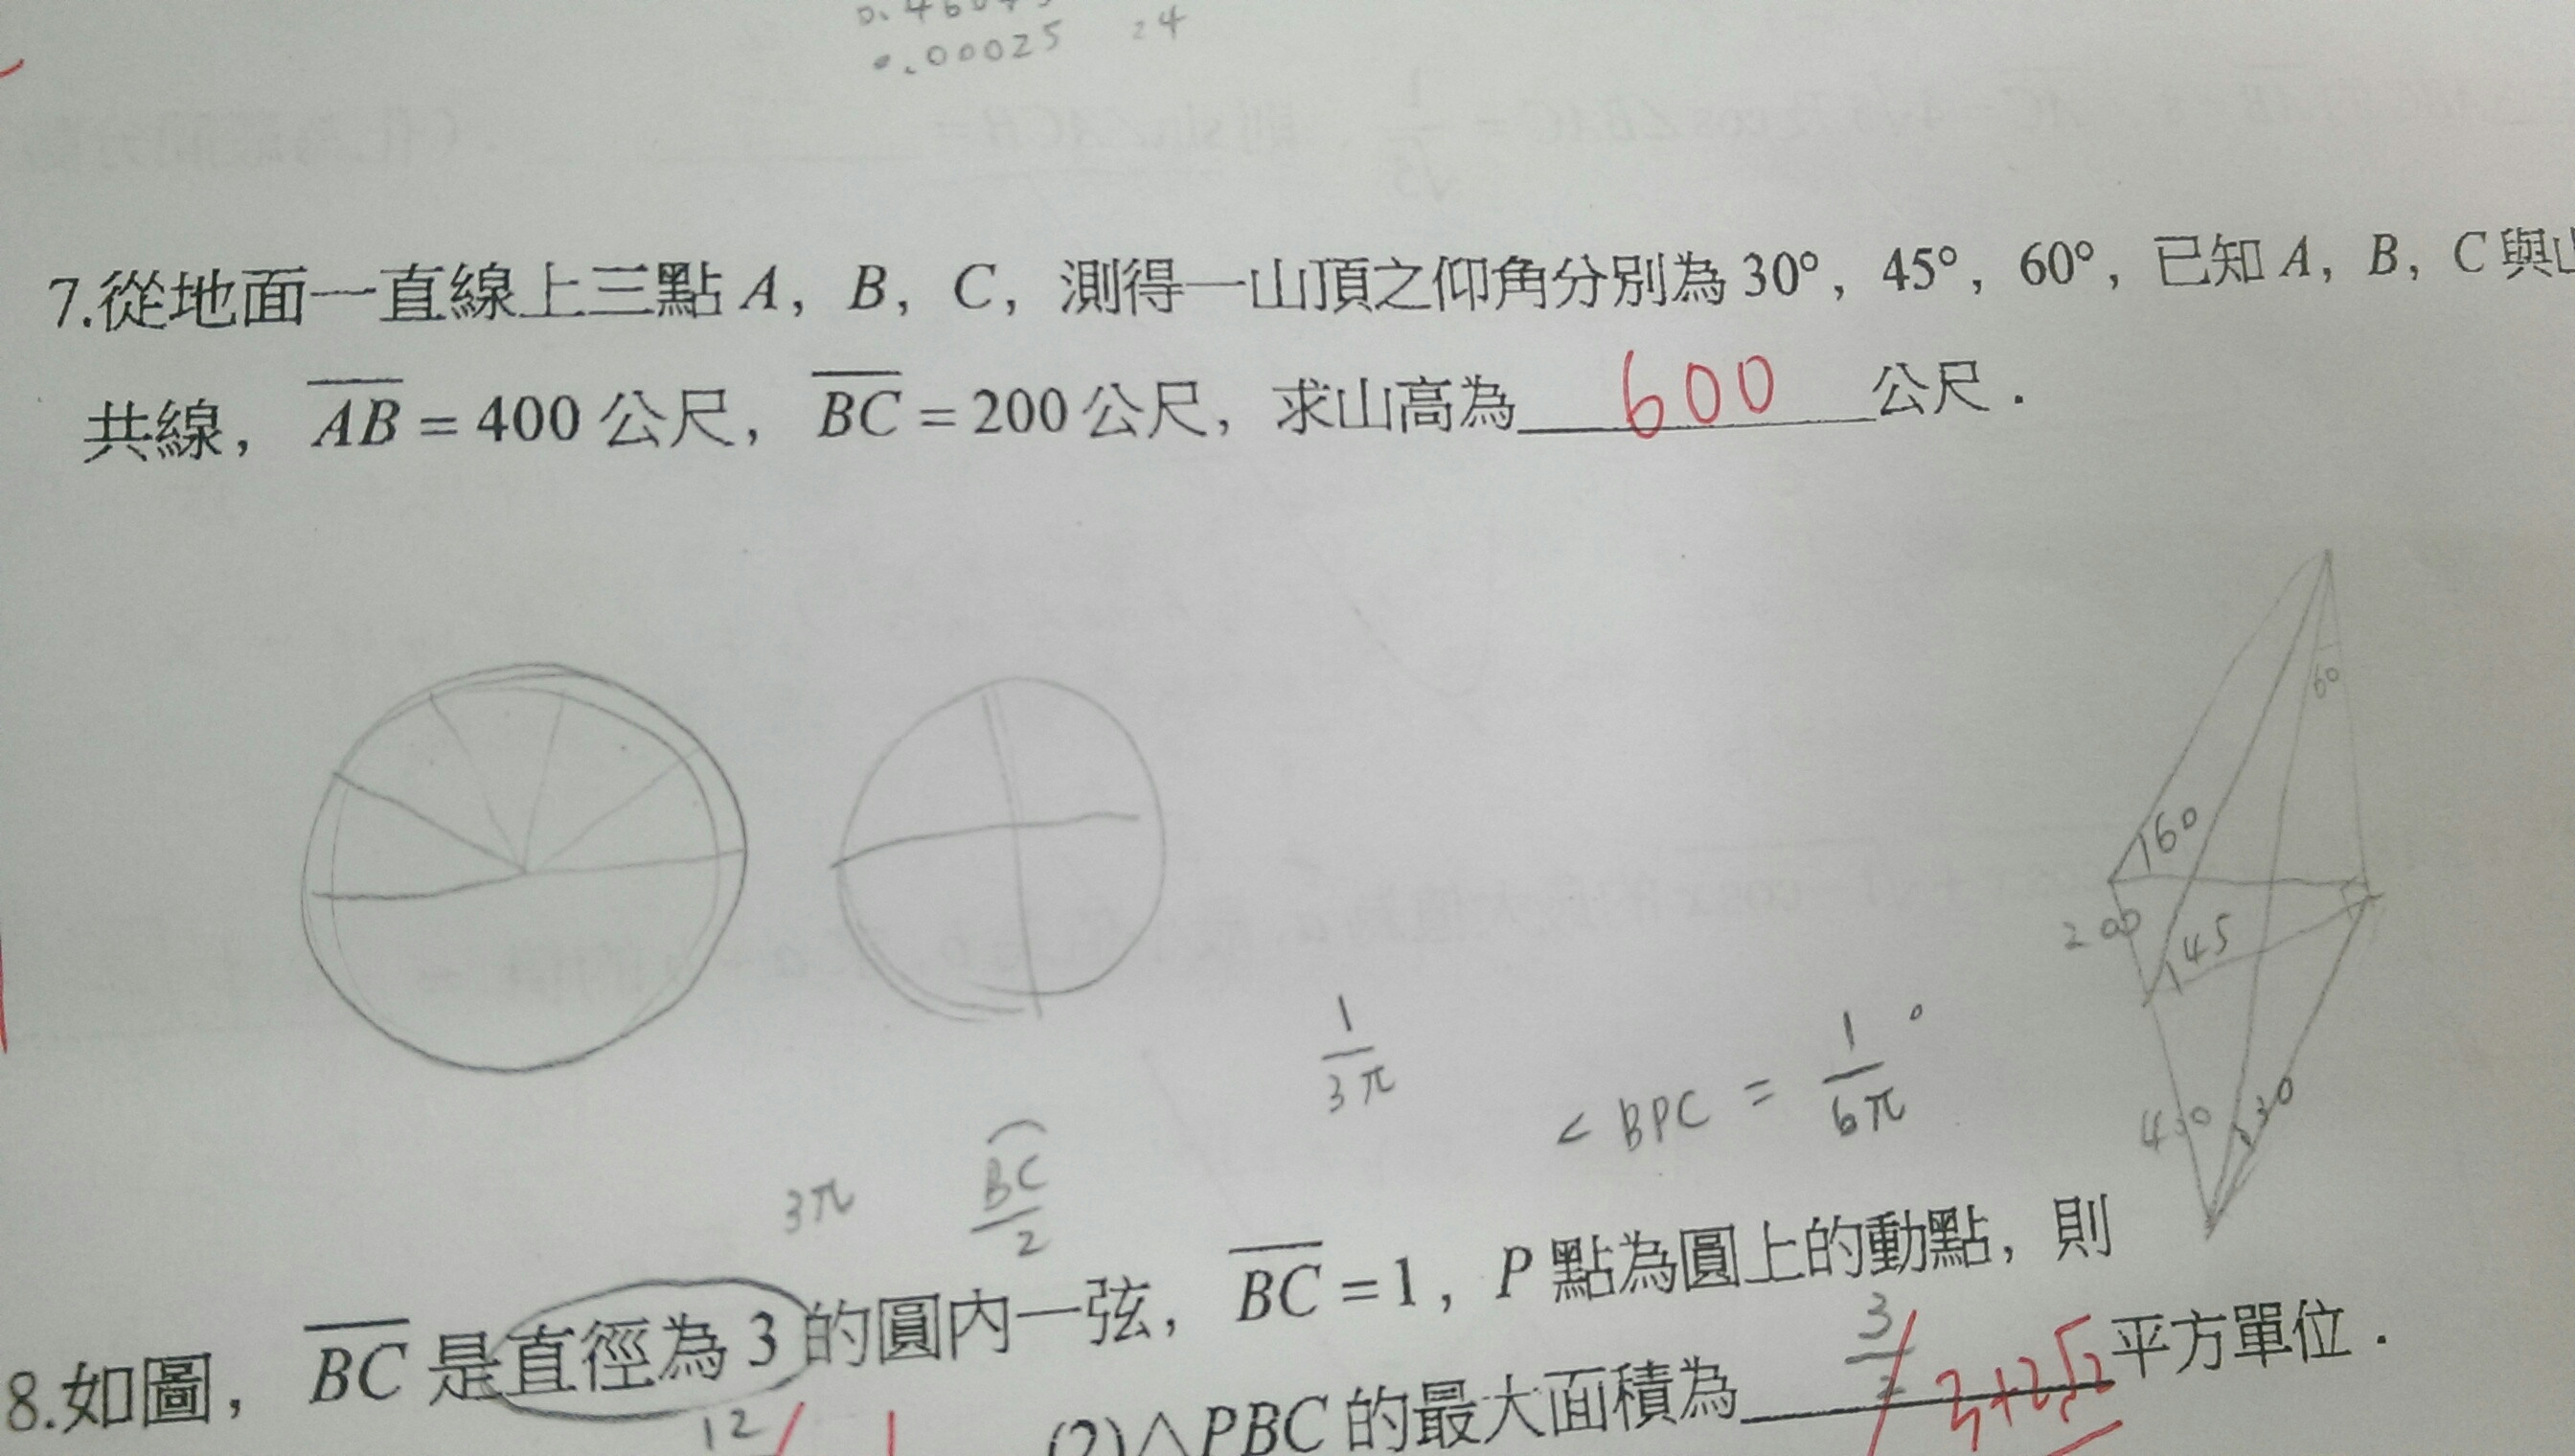 .00025 24
7.從地面一直線上三點 A，B，C，測得一山頂之仰角分別為 30°，45°，60°，已知 A，B，C 與
共線，AB = 400 公尺，BC = 200 公尺，求山高為 600 公尺．
60
60
200
45
30
1/3π
<BPC = 1/6π °
3π
BC/2
8.如圖，BC 是直徑為 3 的圓內一弦，BC = 1，P 點為圓上的動點，則
12 (2)△PBC 的最大面積為 平方單位．